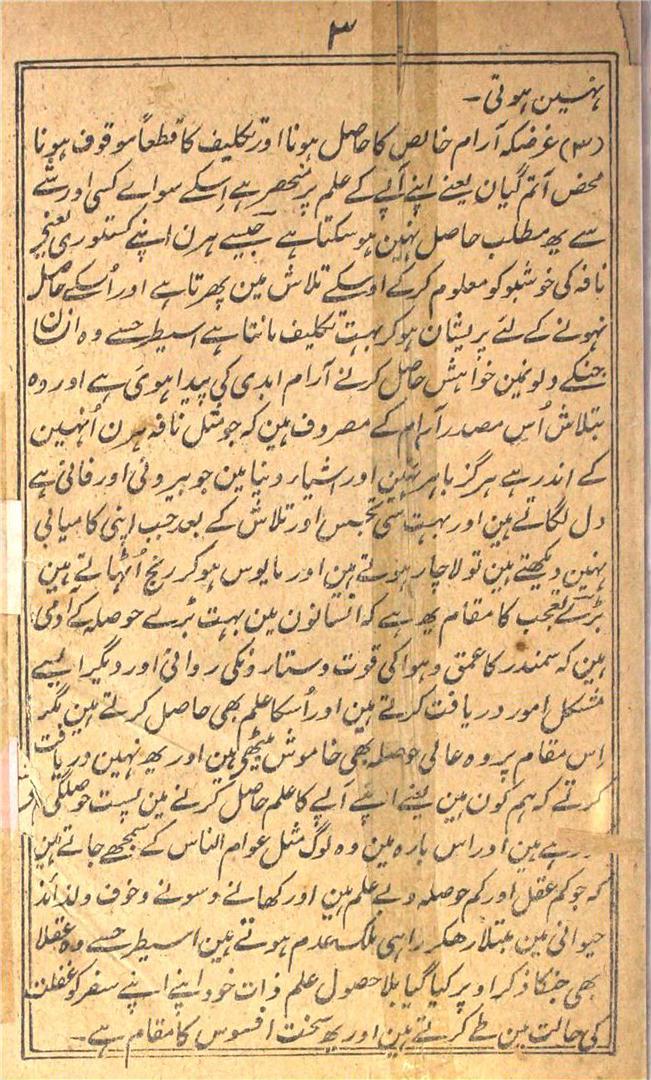 ۳
نہین ہوتی۔
(۳) غرضکہ آرام خالص کا حاصل ہونا اور تکلیف کا قطعاً موقوف ہونا
محض آتم گیان یعنے اپنے آپے کے علم پر منحصر ہے اِسکے سواے کسی اور شے
سے یھ مطلب حاصل نہین ہوسکتا ہے جیسے ہرن اپنے کستوری یعنے
نافہ کی خوشبو کو معلوم کرکے اوسکے تلاش مین پھرتا ہے اور اُسکے حاصل
نہونے کے لئے پریشان ہوکر بہت تکلیف مانتا ہے اسیطرحسے وہ انسان
جنکے دلونمین خواہش حاصل کرنے آرام ابدی کی پیدا ہوئ ہے اور وہ
بتلاش اُس مصدر آرام کے مصروف ہین کہ جو مثل نافہ ہرن اُنہین
کے اندر ہے ہرگز باہر نہین اور اشیار دنیا مین جو بیرونی اور فانی ہے
دل لگاتے ہین اور بہت سی تجسس اور تلاش کے بعد جب اپنی کامیابی
نہین دیکھتے ہین تو لاچار ہوتے ہین اور مایوس ہوکر رنج اُٹھاتے ہین
بڑے تعجب کا مقام یھ ہے کہ انسانون مین بہت بڑے حوصلہ کے آدمی
ہین کہ سمندر کا عمق و ہوا کی قوت و ستارونکی روانی اور دیگر ایسے
مشکل امور دریافت کرتے ہین اور اُسکا علم بھی حاصل کرتے ہین مگر
اِس مقام پر وہ عالی حوصلہ بھی خاموش بیٹھی ہین اور یھ نہین دریافت
کرتے کہ ہم کون ہین یعنے اپنے آپے کا علم حاصل کرنے مین پست حوصلگی
رہے ہین اور اس بارہ مین وہ لوگ مثل عوام الناس کے سمجھے جاتے ہین
کہ جو کم عقل اور کم حوصلہ و بے علم ہین اور کھانے و سونے و خوف و لذائذ
حیوانی مین مبتلا رھکر راہی ملک عدم ہوتے ہین اسیطرحسے وہ عقلا
بھی جنکا ذکر اوپر کیا گیا بلا حصول علم ذات خود اپنے اپنے سفر کو غفلت
کی حالت مین طے کرتے ہین اور یھ سخت افسوس کا مقام ہے۔